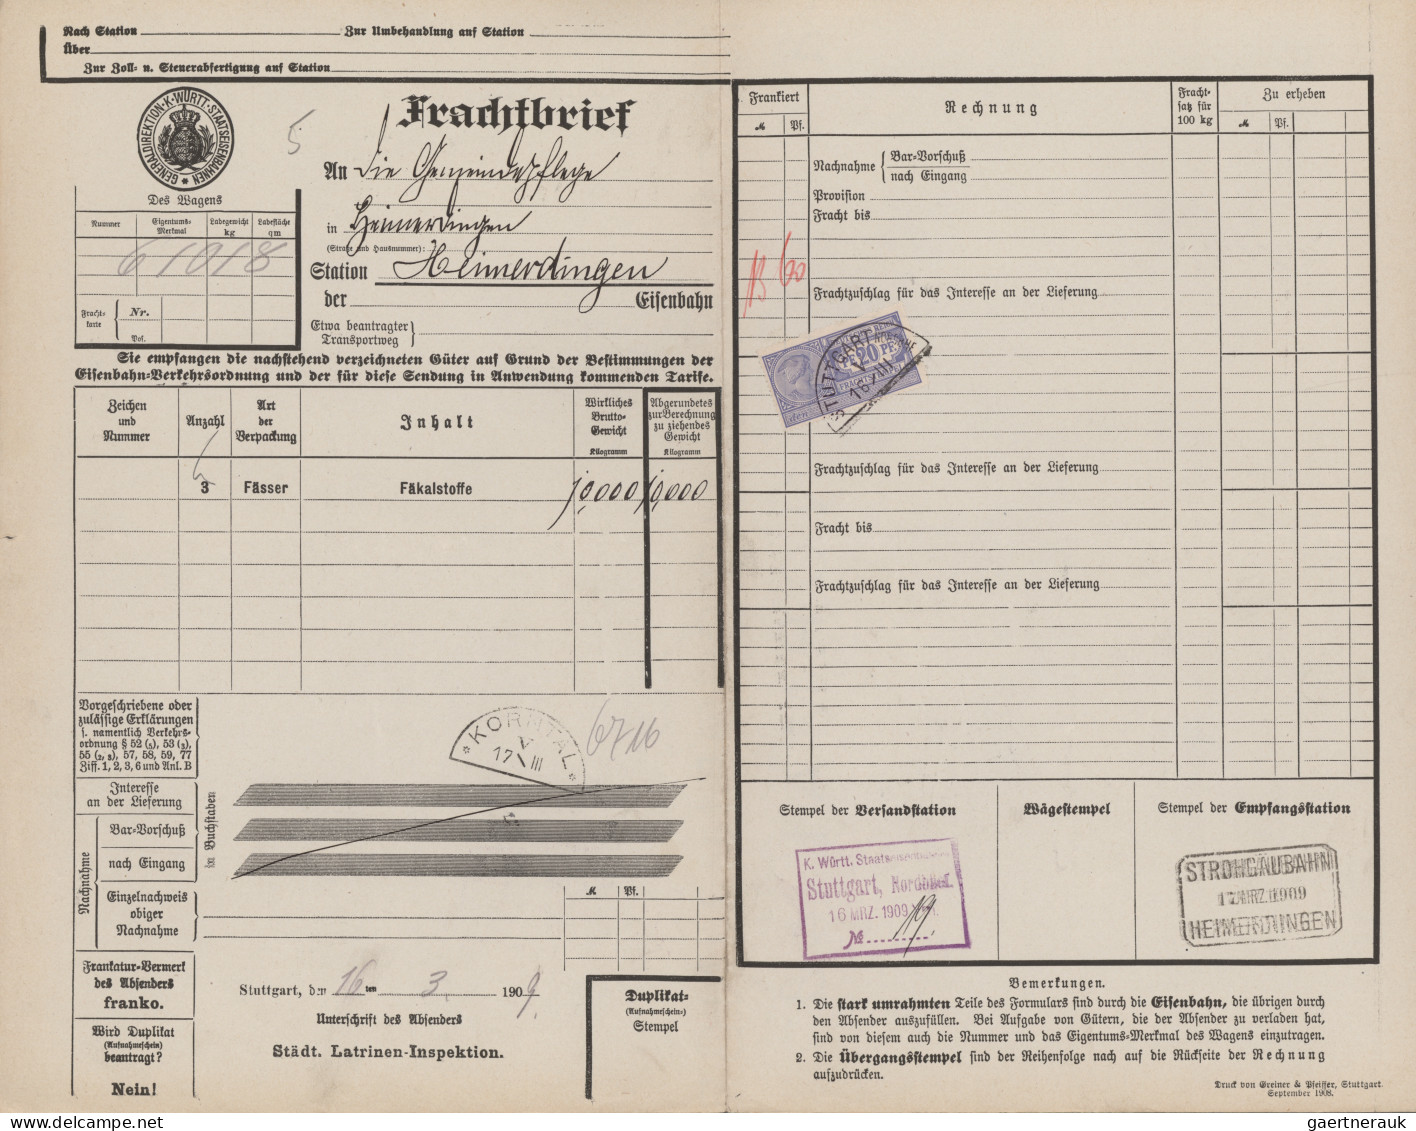 Nach Station
Zur Umbehandlung auf Station
Über
Zur Zoll- u. Steuerabfertigung auf Station
GENERALDIREKTION·K·WÜRTT·STAATSEISENBAHNEN
5
Frachtbrief
An die Gemeindepflege
in Heimerdingen
(Straße und Hausnummer):
Station Heimerdingen
der Eisenbahn
Etwa beantragter
Transportweg
Des Wagens
Nummer
Eigentums-
Merkmal
Ladegewicht
kg
Ladefläche
qm
61018
Fracht-
karte
Nr.
Pos.
Sie empfangen die nachstehend verzeichneten Güter auf Grund der Bestimmungen der
Eisenbahn-Verkehrsordnung und der für diese Sendung in Anwendung kommenden Tarife.
Zeichen
und
Nummer
Anzahl
Art
der
Verpackung
Inhalt
Wirkliches
Brutto-
Gewicht
Kilogramm
Abgerundetes
zur Berechnung
zu ziehendes
Gewicht
Kilogramm
3 Fässer Fäkalstoffe 10,000 10,000
Vorgeschriebene oder
zulässige Erklärungen
s. namentlich Verkehrs-
ordnung § 52 (5), 53 (3),
55 (2, 8), 57, 58, 59, 77
Ziff. 1, 2, 3, 6 und Anl. B
* KORNTAL *
V
17 III
6716
Interesse
an der Lieferung
Nachnahme
Bar-Vorschuß
nach Eingang
Einzelnachweis
obiger
Nachnahme
in Buchstaben
M Pf.
Frankatur-Vermerk
des Absenders
franko.
Wird Duplikat
(Aufnahmeschein)
beantragt?
Nein!
Stuttgart, den 16ten 3. 1909.
Unterschrift des Absenders
Städt. Latrinen-Inspektion.
Duplikat-
(Aufnahmeschein-)
Stempel
Frankiert
M Pf.
Rechnung
Fracht-
satz für
100 kg
Zu erheben
M Pf.
Nachnahme
Bar-Vorschuß
nach Eingang
Provision
Fracht bis
60
Frachtzuschlag für das Interesse an der Lieferung
20 PF
FRACHTSTEMPEL
STUTTGART
V
16 III
Frachtzuschlag für das Interesse an der Lieferung
Fracht bis
Frachtzuschlag für das Interesse an der Lieferung
Stempel der Versandstation
Wägestempel
Stempel der Empfangsstation
K. Württ. Staatseisenbahnen
Stuttgart, Nordbhf.
16 MRZ. 1909
№ 119
STROHGÄUBAHN
17 MRZ. 1909
HEIMERDINGEN
Bemerkungen.
1. Die stark umrahmten Teile des Formulars sind durch die Eisenbahn, die übrigen durch
den Absender auszufüllen. Bei Aufgabe von Gütern, die der Absender zu verladen hat,
sind von diesem auch die Nummer und das Eigentums-Merkmal des Wagens einzutragen.
2. Die Übergangsstempel sind der Reihenfolge nach auf die Rückseite der Rechnung
aufzudrücken.
Druck von Greiner & Pfeiffer, Stuttgart.
September 1908.
gaertnerauk @ delcampe.net